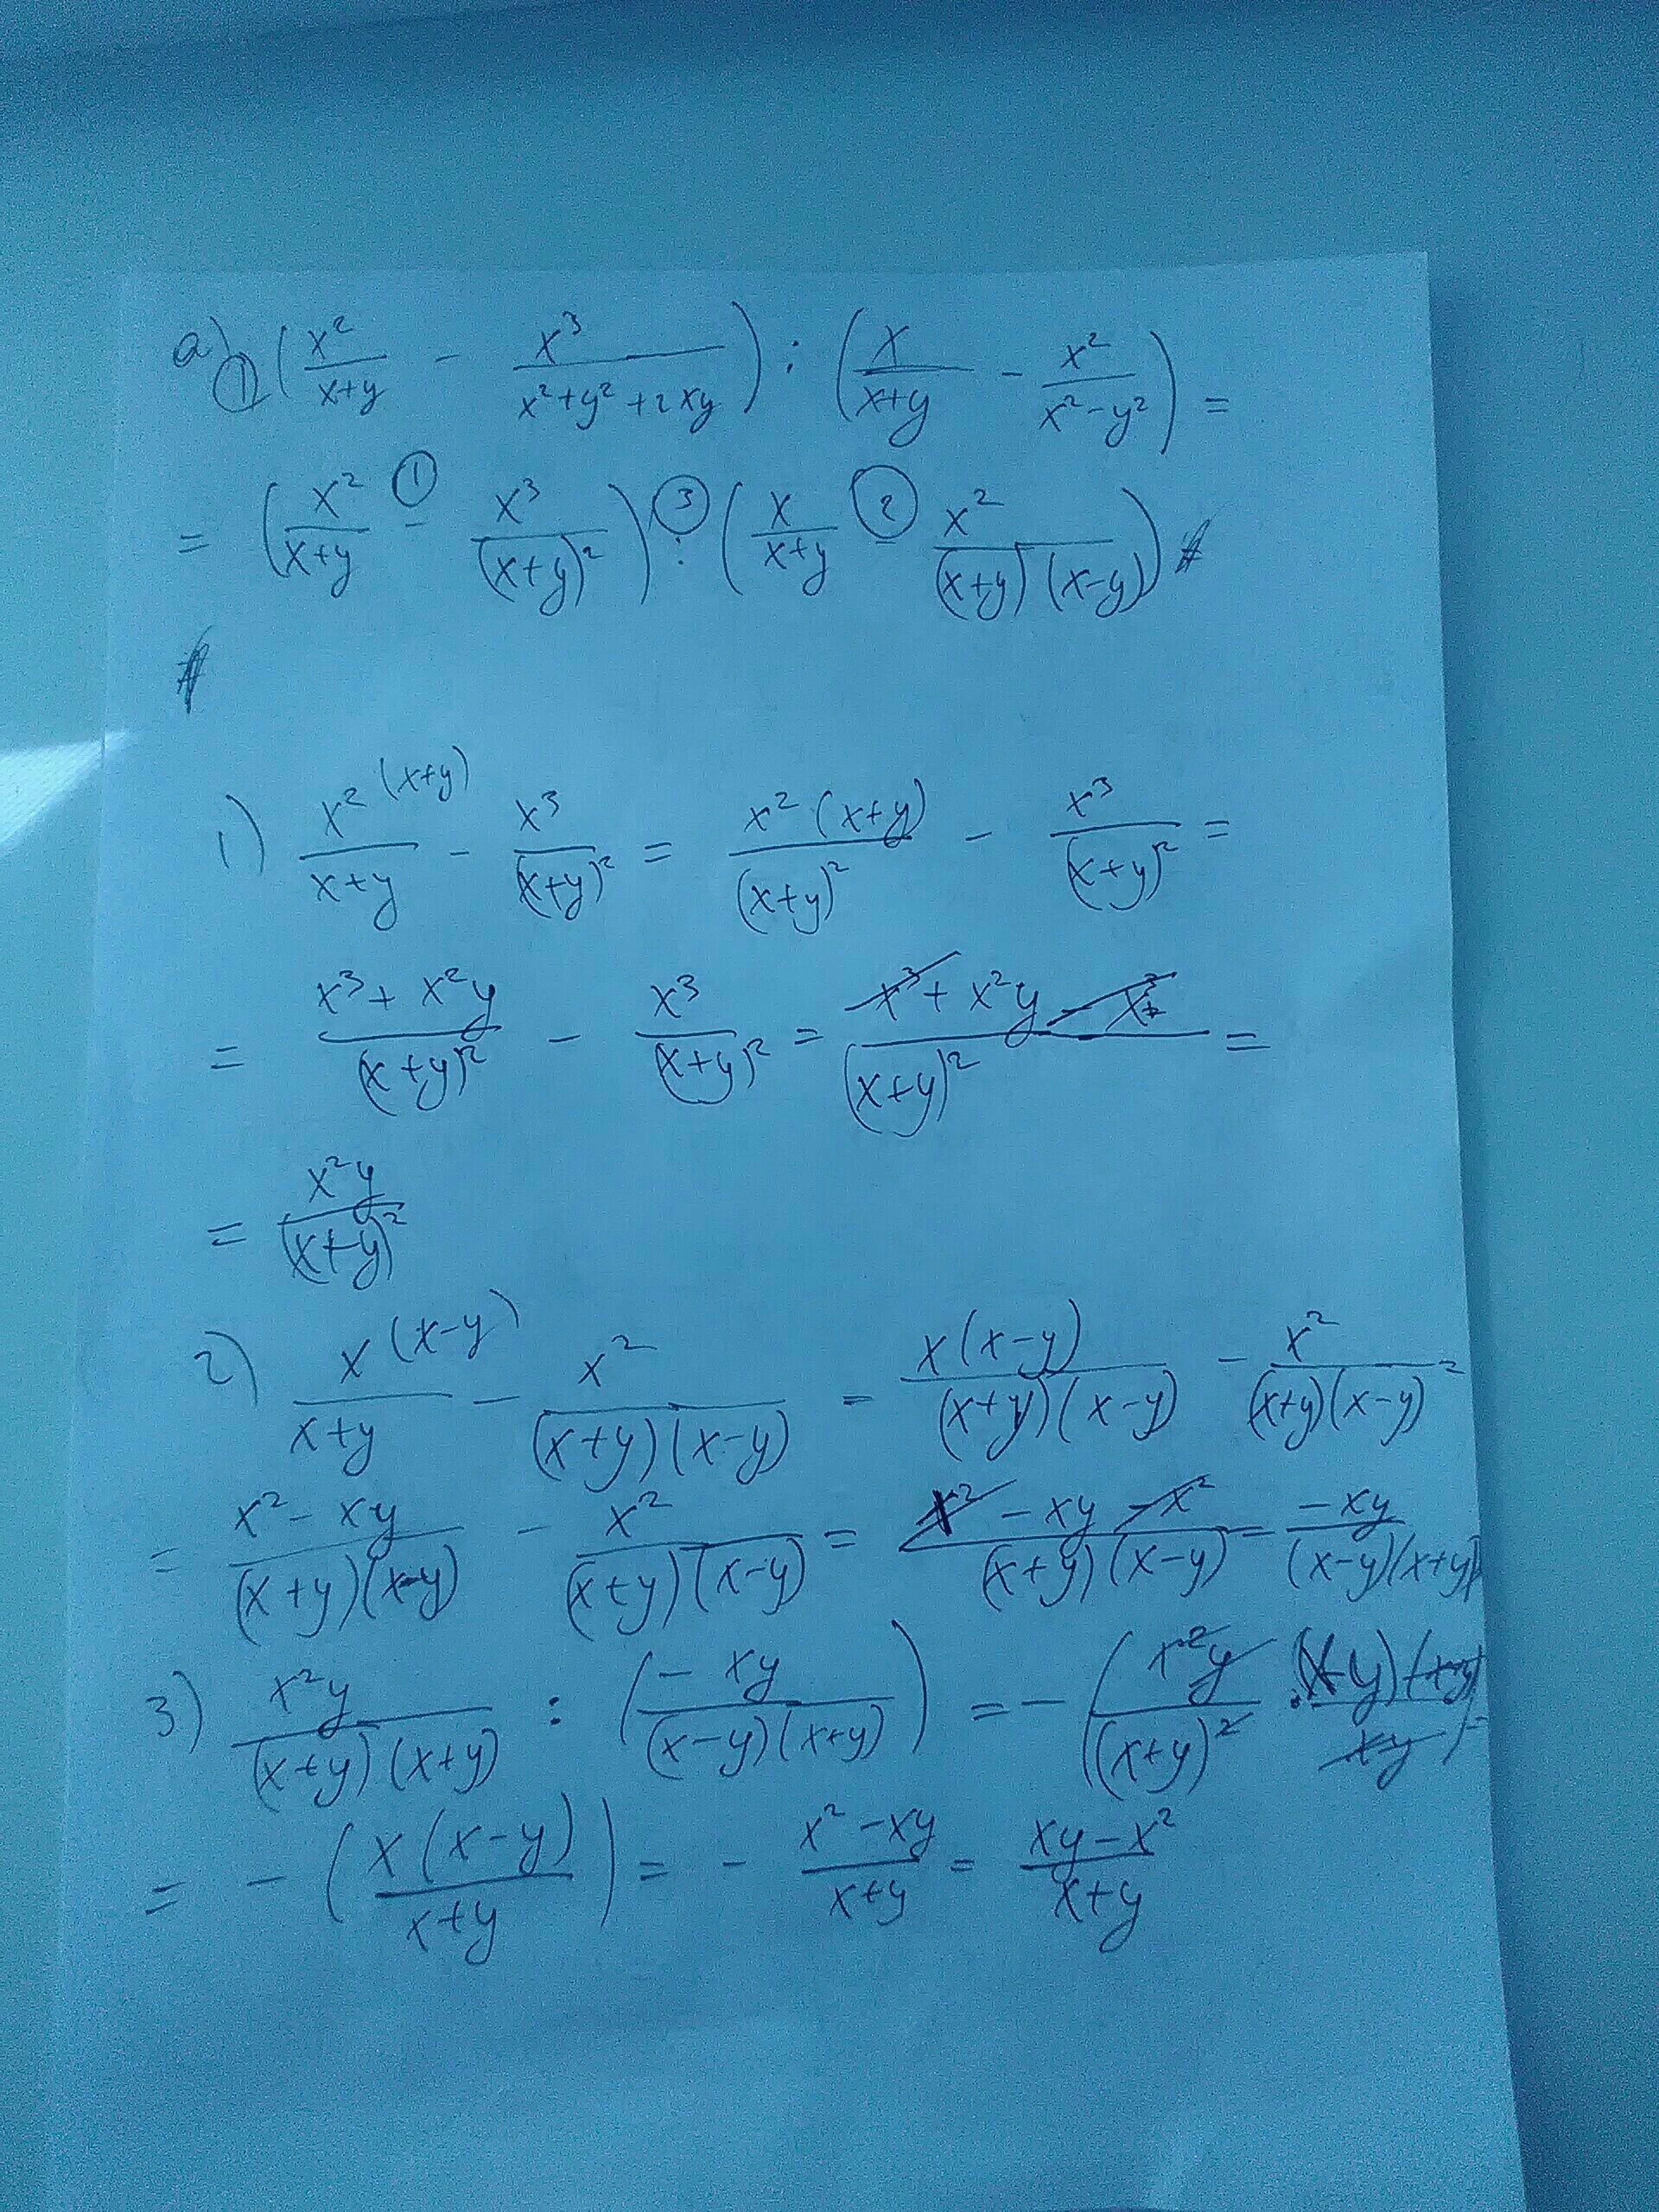 a) ① (x²/(x+y) - x³/(x²+y²+2xy)) : (x/(x+y) - x²/(x²-y²)) =
= (x²/(x+y) -① x³/(x+y)²) :③ (x/(x+y) -② x²/((x+y)(x-y)))
1) x²^(x+y)/(x+y) - x³/(x+y)² = x²(x+y)/(x+y)² - x³/(x+y)² =
= (x³+x²y)/(x+y)² - x³/(x+y)² = (x³+x²y-x³)/(x+y)² =
= x²y/(x+y)²
2) x^(x-y)/(x+y) - x²/((x+y)(x-y)) = x(x-y)/((x+y)(x-y)) - x²/((x+y)(x-y)) =
= (x²-xy)/((x+y)(x-y)) - x²/((x+y)(x-y)) = (x²-xy-x²)/((x+y)(x-y)) = -xy/((x-y)(x+y))
3) x²y/((x+y)(x+y)) : (-xy/((x-y)(x+y))) = -(x²y/(x+y)² · (x-y)(x+y)/xy) =
= -(x(x-y)/(x+y)) = - (x²-xy)/(x+y) = (xy-x²)/(x+y)